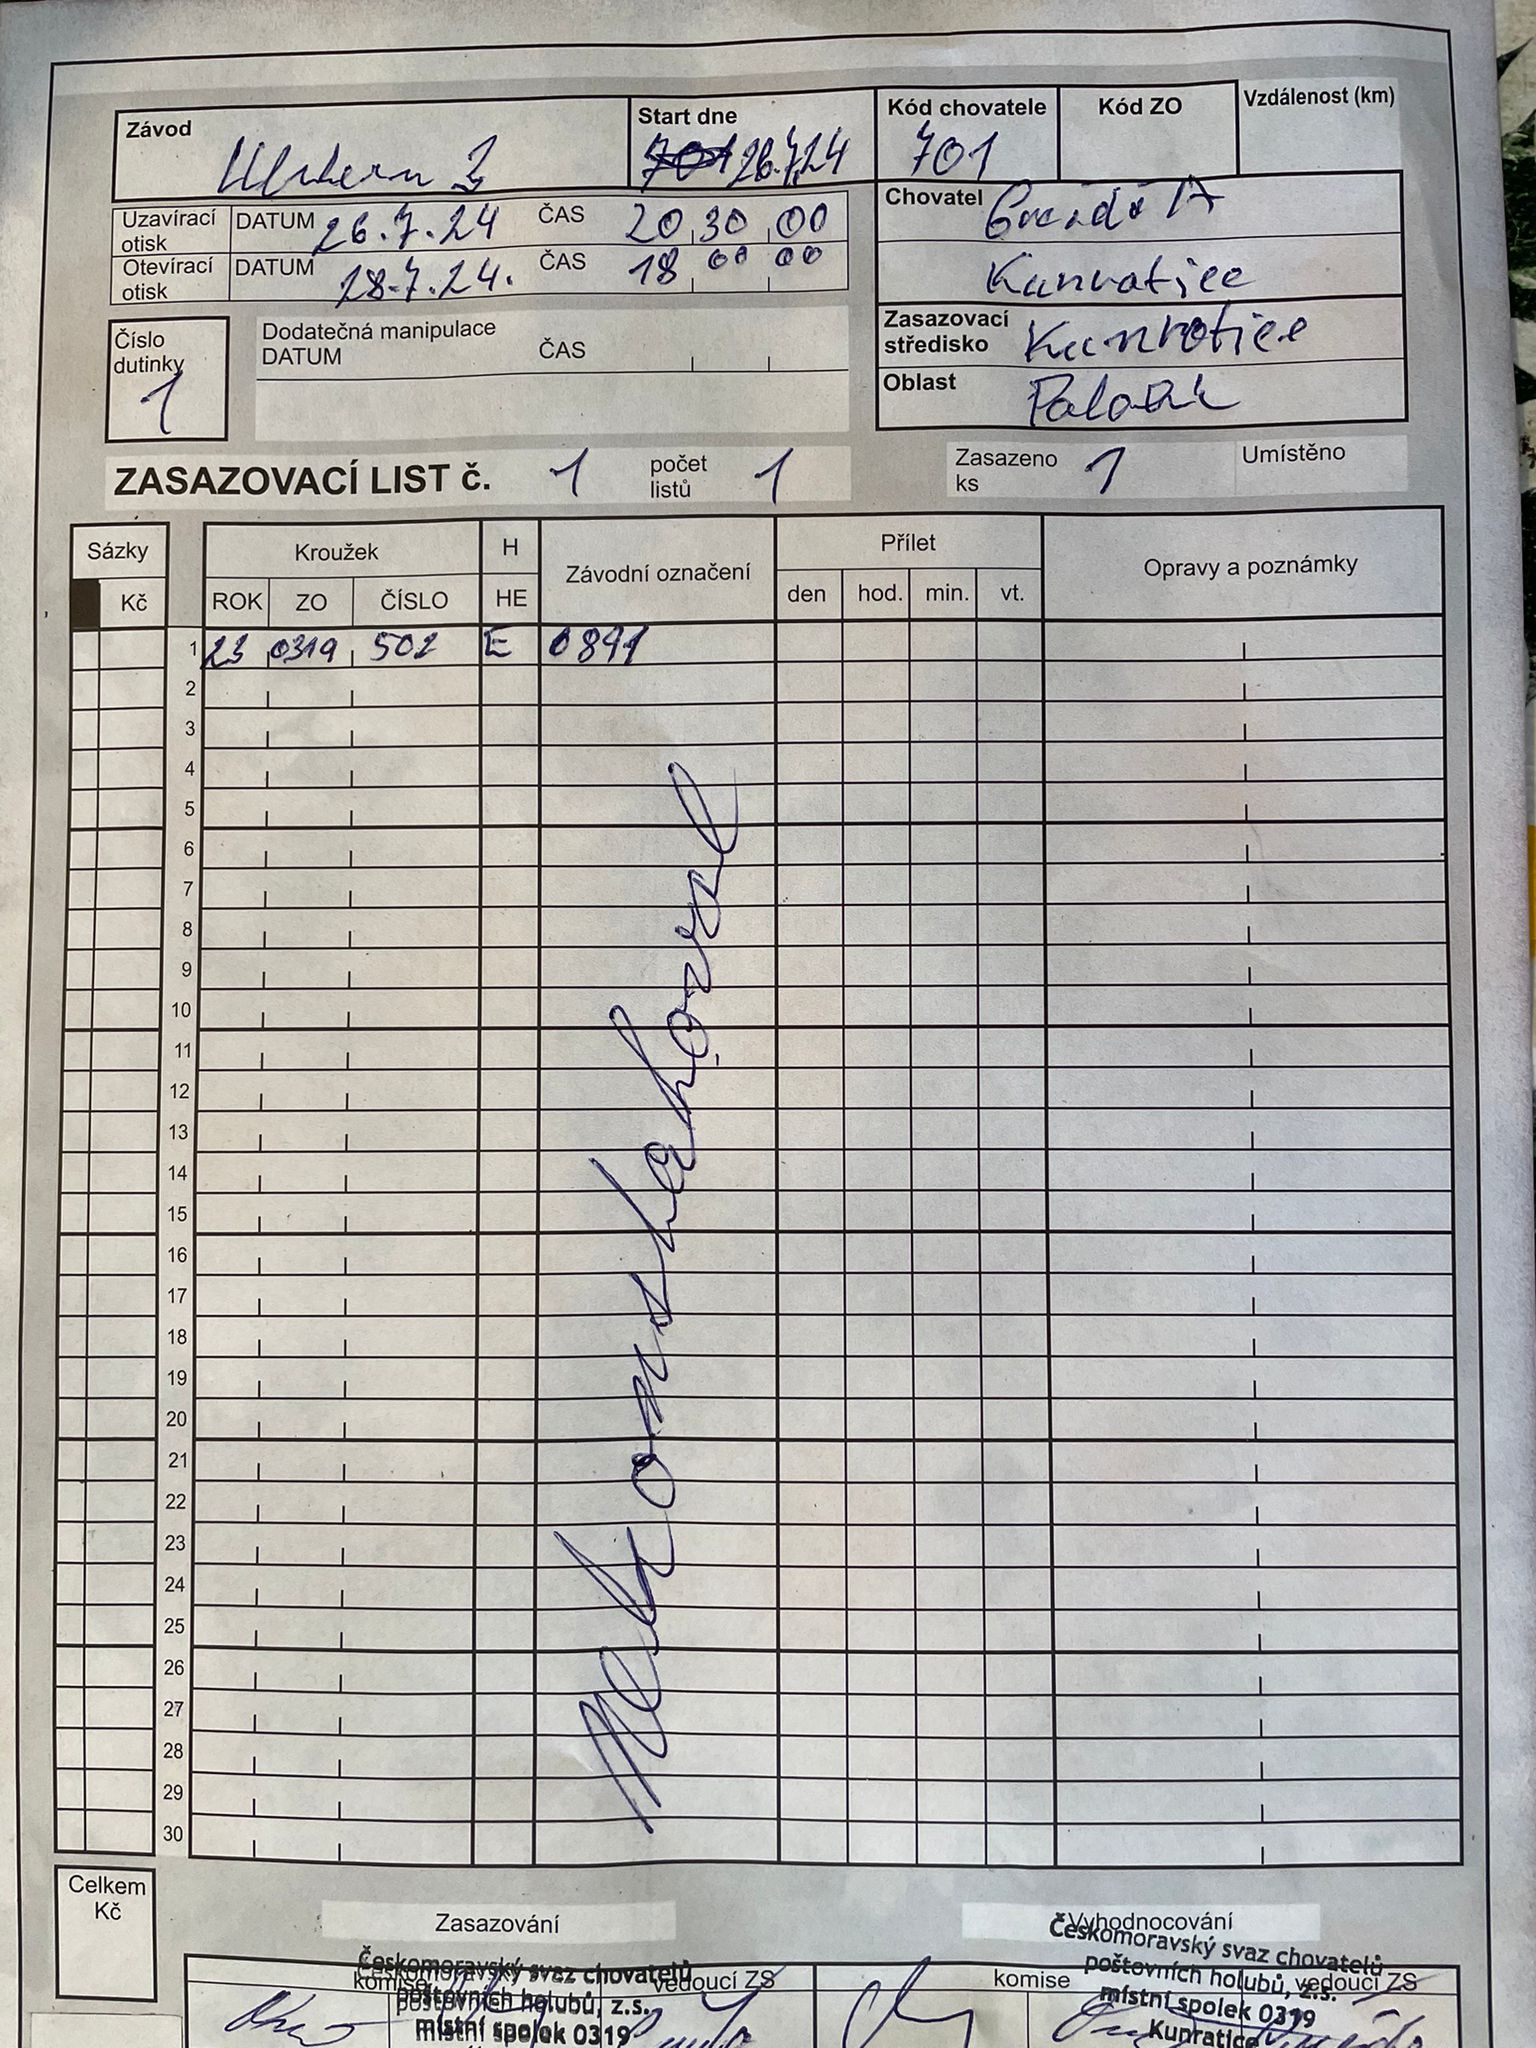 Závod
Start dne
Kód chovatele
Kód ZO
Vzdálenost (km)
3
701 26.7.24
701
Uzavírací otisk
DATUM 26.7.24
ČAS 20 30 00
Otevírací otisk
DATUM 28.7.24.
ČAS 18 00 00
Chovatel
Kunratice
Zasazovací středisko Kunratice
Oblast
Číslo dutinky
1
Dodatečná manipulace
DATUM
ČAS
ZASAZOVACÍ LIST č. 1
počet listů 1
Zasazeno ks 1
Umístěno
Sázky
Kroužek
H
Závodní označení
Přílet
Opravy a poznámky
Kč
ROK
ZO
ČÍSLO
HE
den
hod.
min.
vt.
1 23 0319 502 E 0891
2
3
4
5
6
7
8
9
10
11
12
13
14
15
16
17
18
19
20
21
22
23
24
25
26
27
28
29
30
Nekonstatoval
Celkem
Kč
Zasazování
Vyhodnocování
komise
vedoucí ZS
komise
vedoucí ZS
Českomoravský svaz chovatelů
poštovních holubů, z.s.
místní spolek 0319
Českomoravský svaz chovatelů
poštovních holubů, z.s.
místní spolek 0319
Kunratice